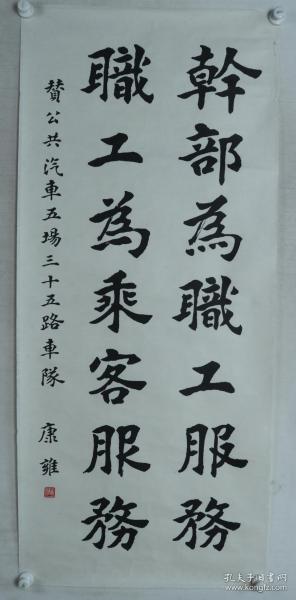 幹部為職工服務
職工為乘客服務
賛公共汽車五場三十五路車隊 康雍
孔夫子旧书网